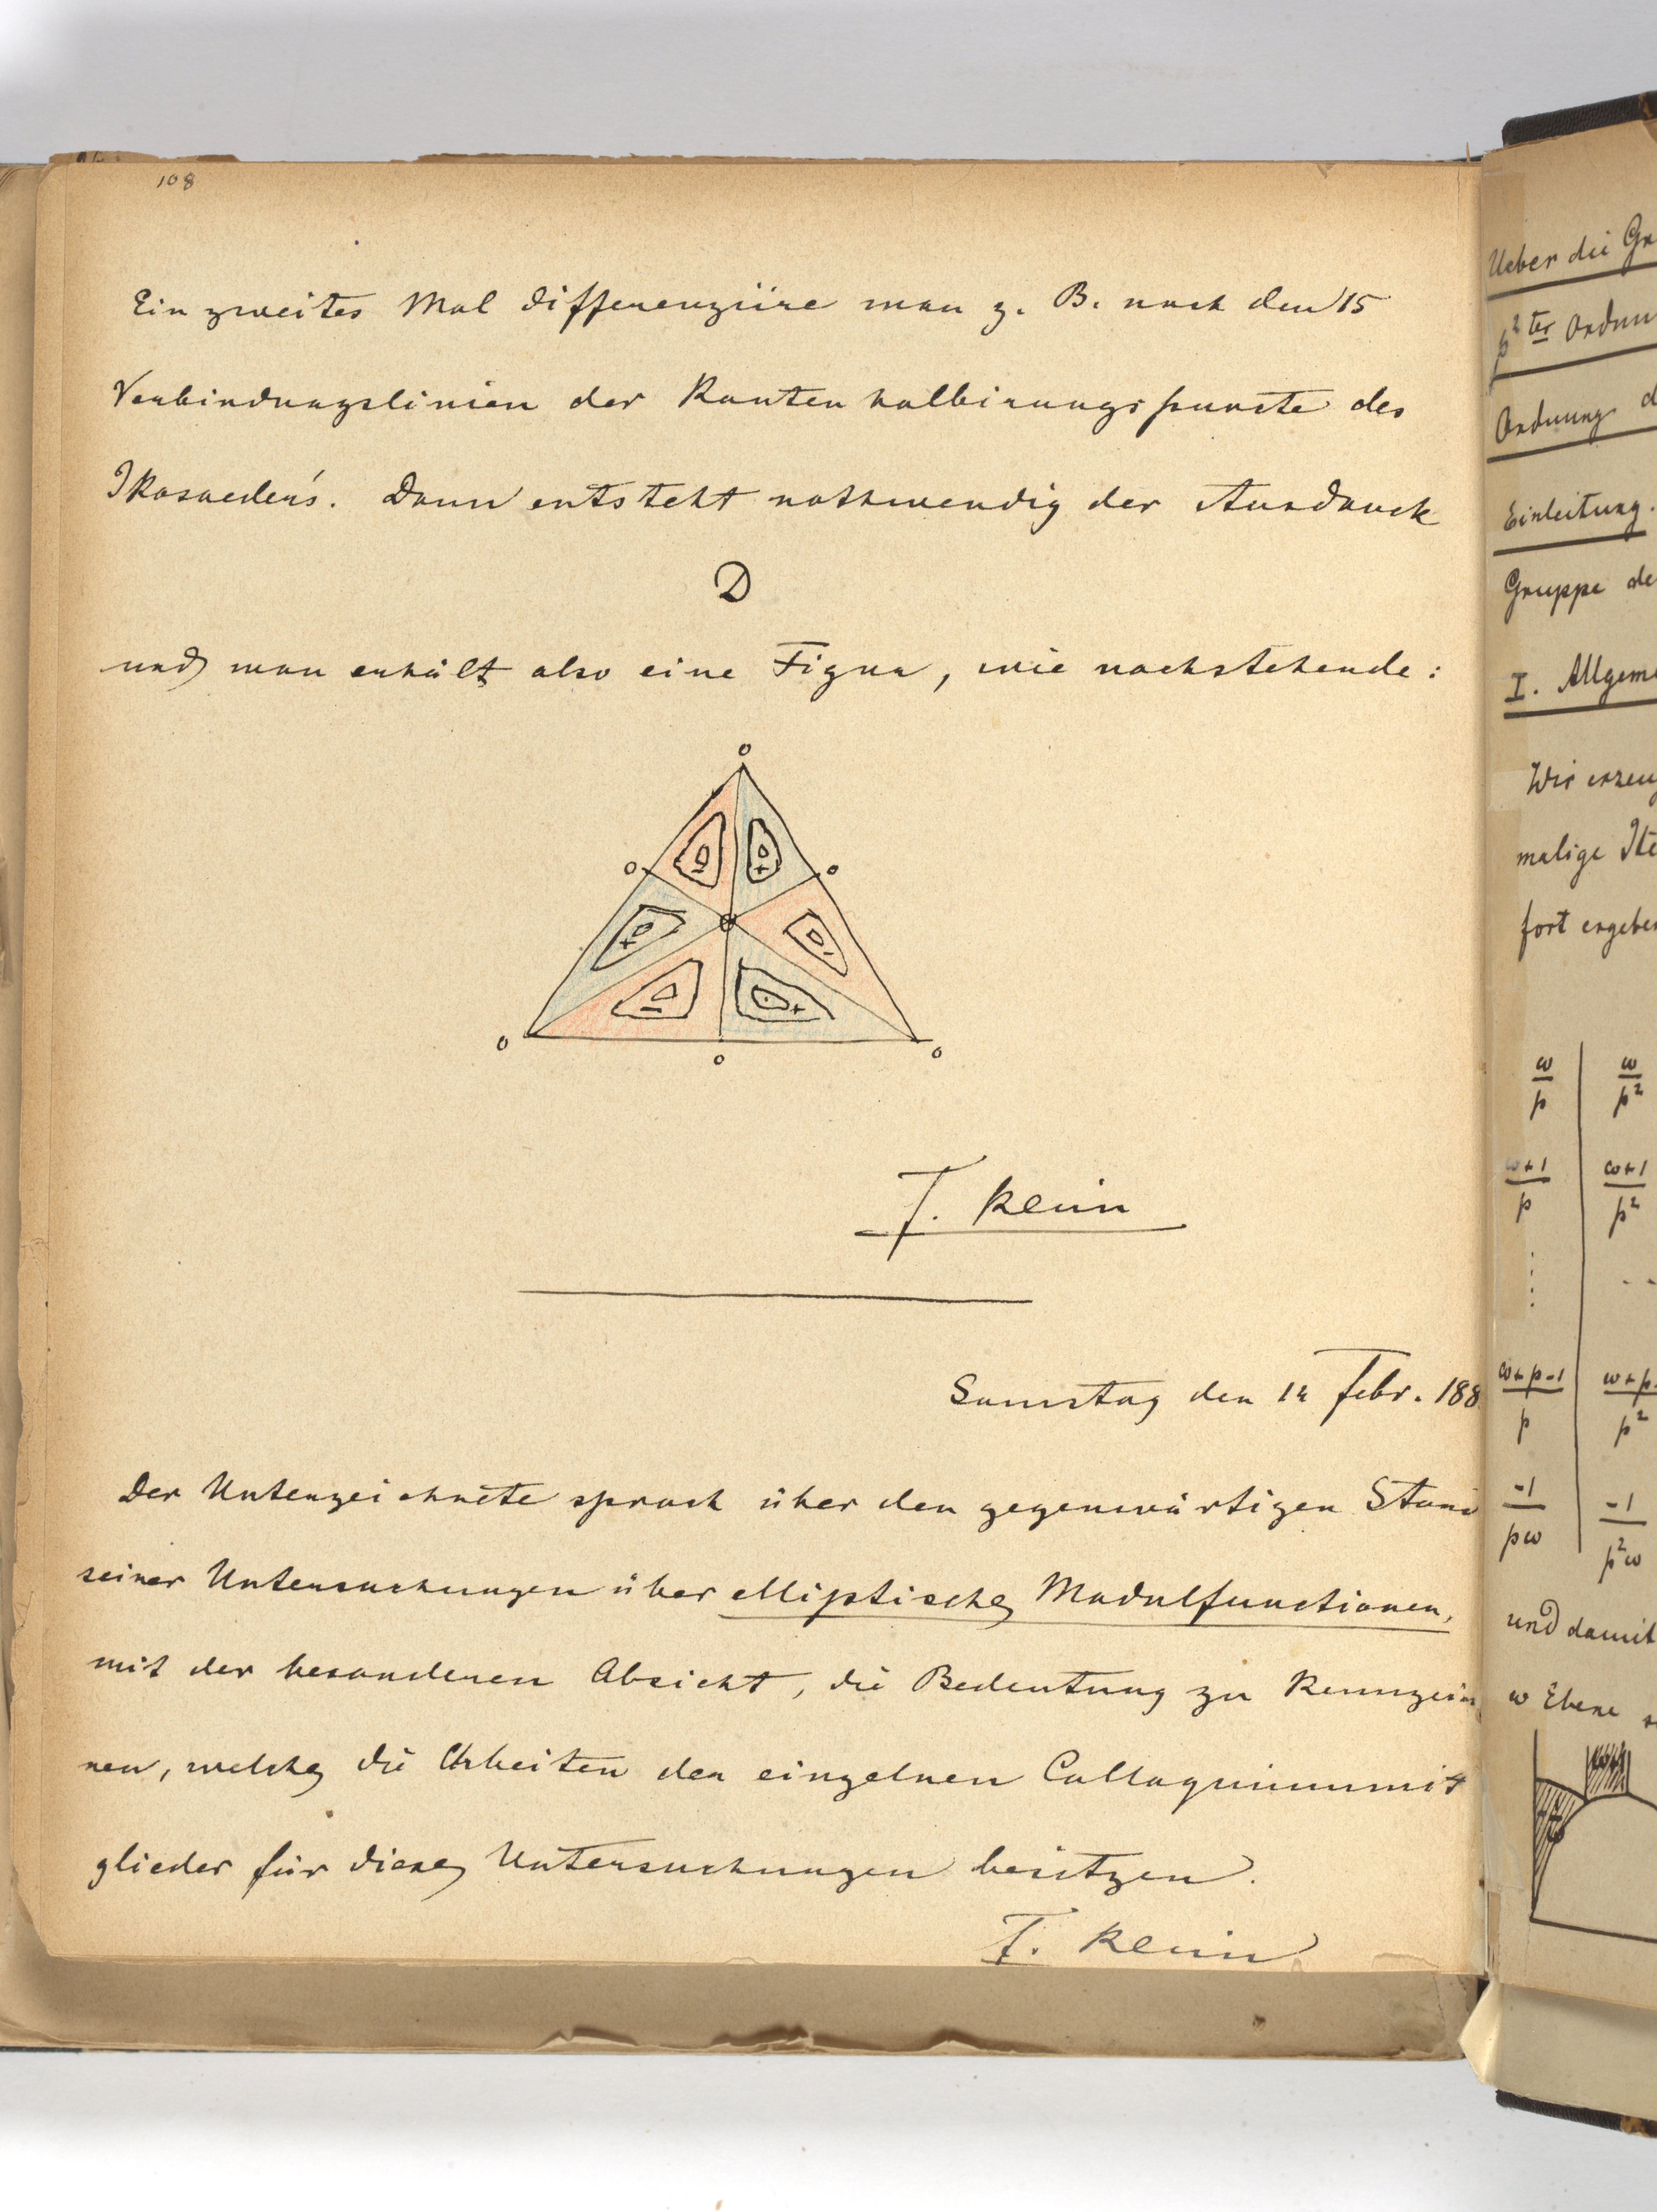 108
Ein zweites Mal differenziire man z. B. nach den 15
Verbindungslinien der Kantenhalbirungspuncte des
Ikosaeders. Dann entsteht nothwendig der Ausdruck
D
und man erhält also eine Figur, wie nachstehende:
0
0 0
0 0
0
F. Klein
Samstag den 14 Febr. 188
Der Unterzeichnete sprach über den gegenwärtigen Stand
seiner Untersuchungen über elliptische Modulfunctionen,
mit der besonderen Absicht, die Bedeutung zu
nen, welche die Arbeiten der einzelnen Colloquiummit
glieder für diese Untersuchungen besitzen.
F. Klein
Ueber die Gr
p² ter Ordnun
Ordnung d
Einleitung.
Gruppe de
I. Allgeme
Wir erzeug
malige Ite
fort ergeben
ω/p | ω/p²
ω+1/p | ω+1/p²
ω+p-1/p | ω+p-/p²
-1/pω | -1/p²ω
und damit
ω Ebene